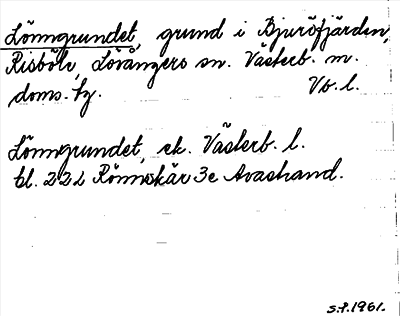 Lönngrundet, grund i Bjuröfjärden,
Risböle, Lövångers sn. Västerb. m.
doms. hg. Vb. l.
Lönngrundet, ek. Västerb. l.
bl. 222 Rönnskär 3e Avastrand.
S.P. 1961.